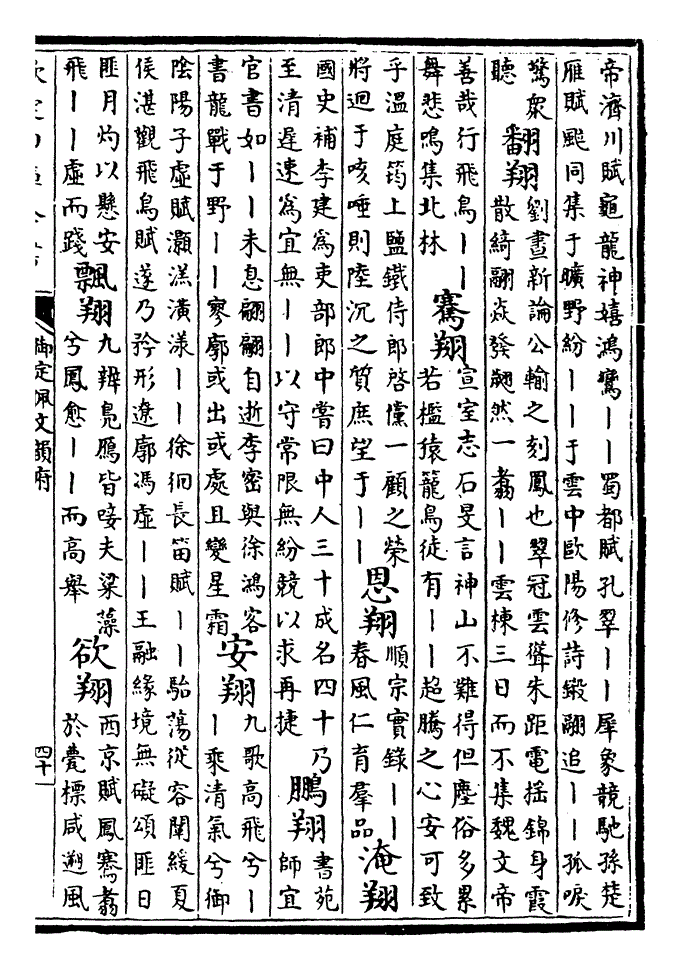 帝濟川賦龜龍神嬉鴻鸞丨丨蜀都賦孔翠丨丨犀象競馳孫楚
雁賦颷同集于曠野紛丨丨于雲中歐陽修詩鍛翮追丨丨孤唳
驚衆
聽
翻翔
劉晝新論公輸之刻鳳也翠冠雲聳朱距電揺錦身霞
散綺翮焱發翹然一翥丨丨雲棟三日而不集魏文帝
善哉行飛鳥丨丨
舞悲鳴集北林
騫翔
宣室志石旻言神山不難得但塵俗多累
若檻猿籠鳥徒有丨丨超騰之心安可致
乎溫庭筠上鹽鐵侍郎啓儻一顧之榮
將迴于咳唾則陸沉之質庶望于丨丨
恩翔
順宗實錄丨丨
春風仁育羣品
淹翔
國史補李建為吏部郎中嘗曰中人三十成名四十乃
至清遲速為宜無丨丨以守常限無紛競以求再捷
鵬翔
書苑
師宜
官書如丨丨未息翩翩自逝李密與徐鴻客
書龍戰于野丨丨寥廓或出或處且變星霜
安翔
九歌高飛兮丨
丨乘清氣兮御
陰陽子虛賦灝溔潢漾丨丨徐徊長笛賦丨丨駘蕩從容闡緩夏
侯湛觀飛鳥賦遂乃矜形遼廓馮虛丨丨王融緣境無礙頌匪日
匪月灼以懸安
飛丨丨虛而踐
飄翔
九辨鳧鴈皆唼夫粱藻
兮鳳愈丨丨而高舉
欲翔
西京賦鳳騫翥
於甍標咸遡風
御定佩文韻府
四十